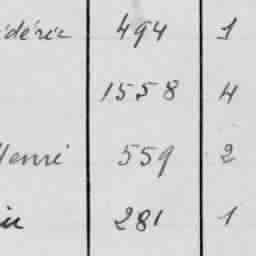 idéric 494 1
1558 4
Henri 559 2
281 1